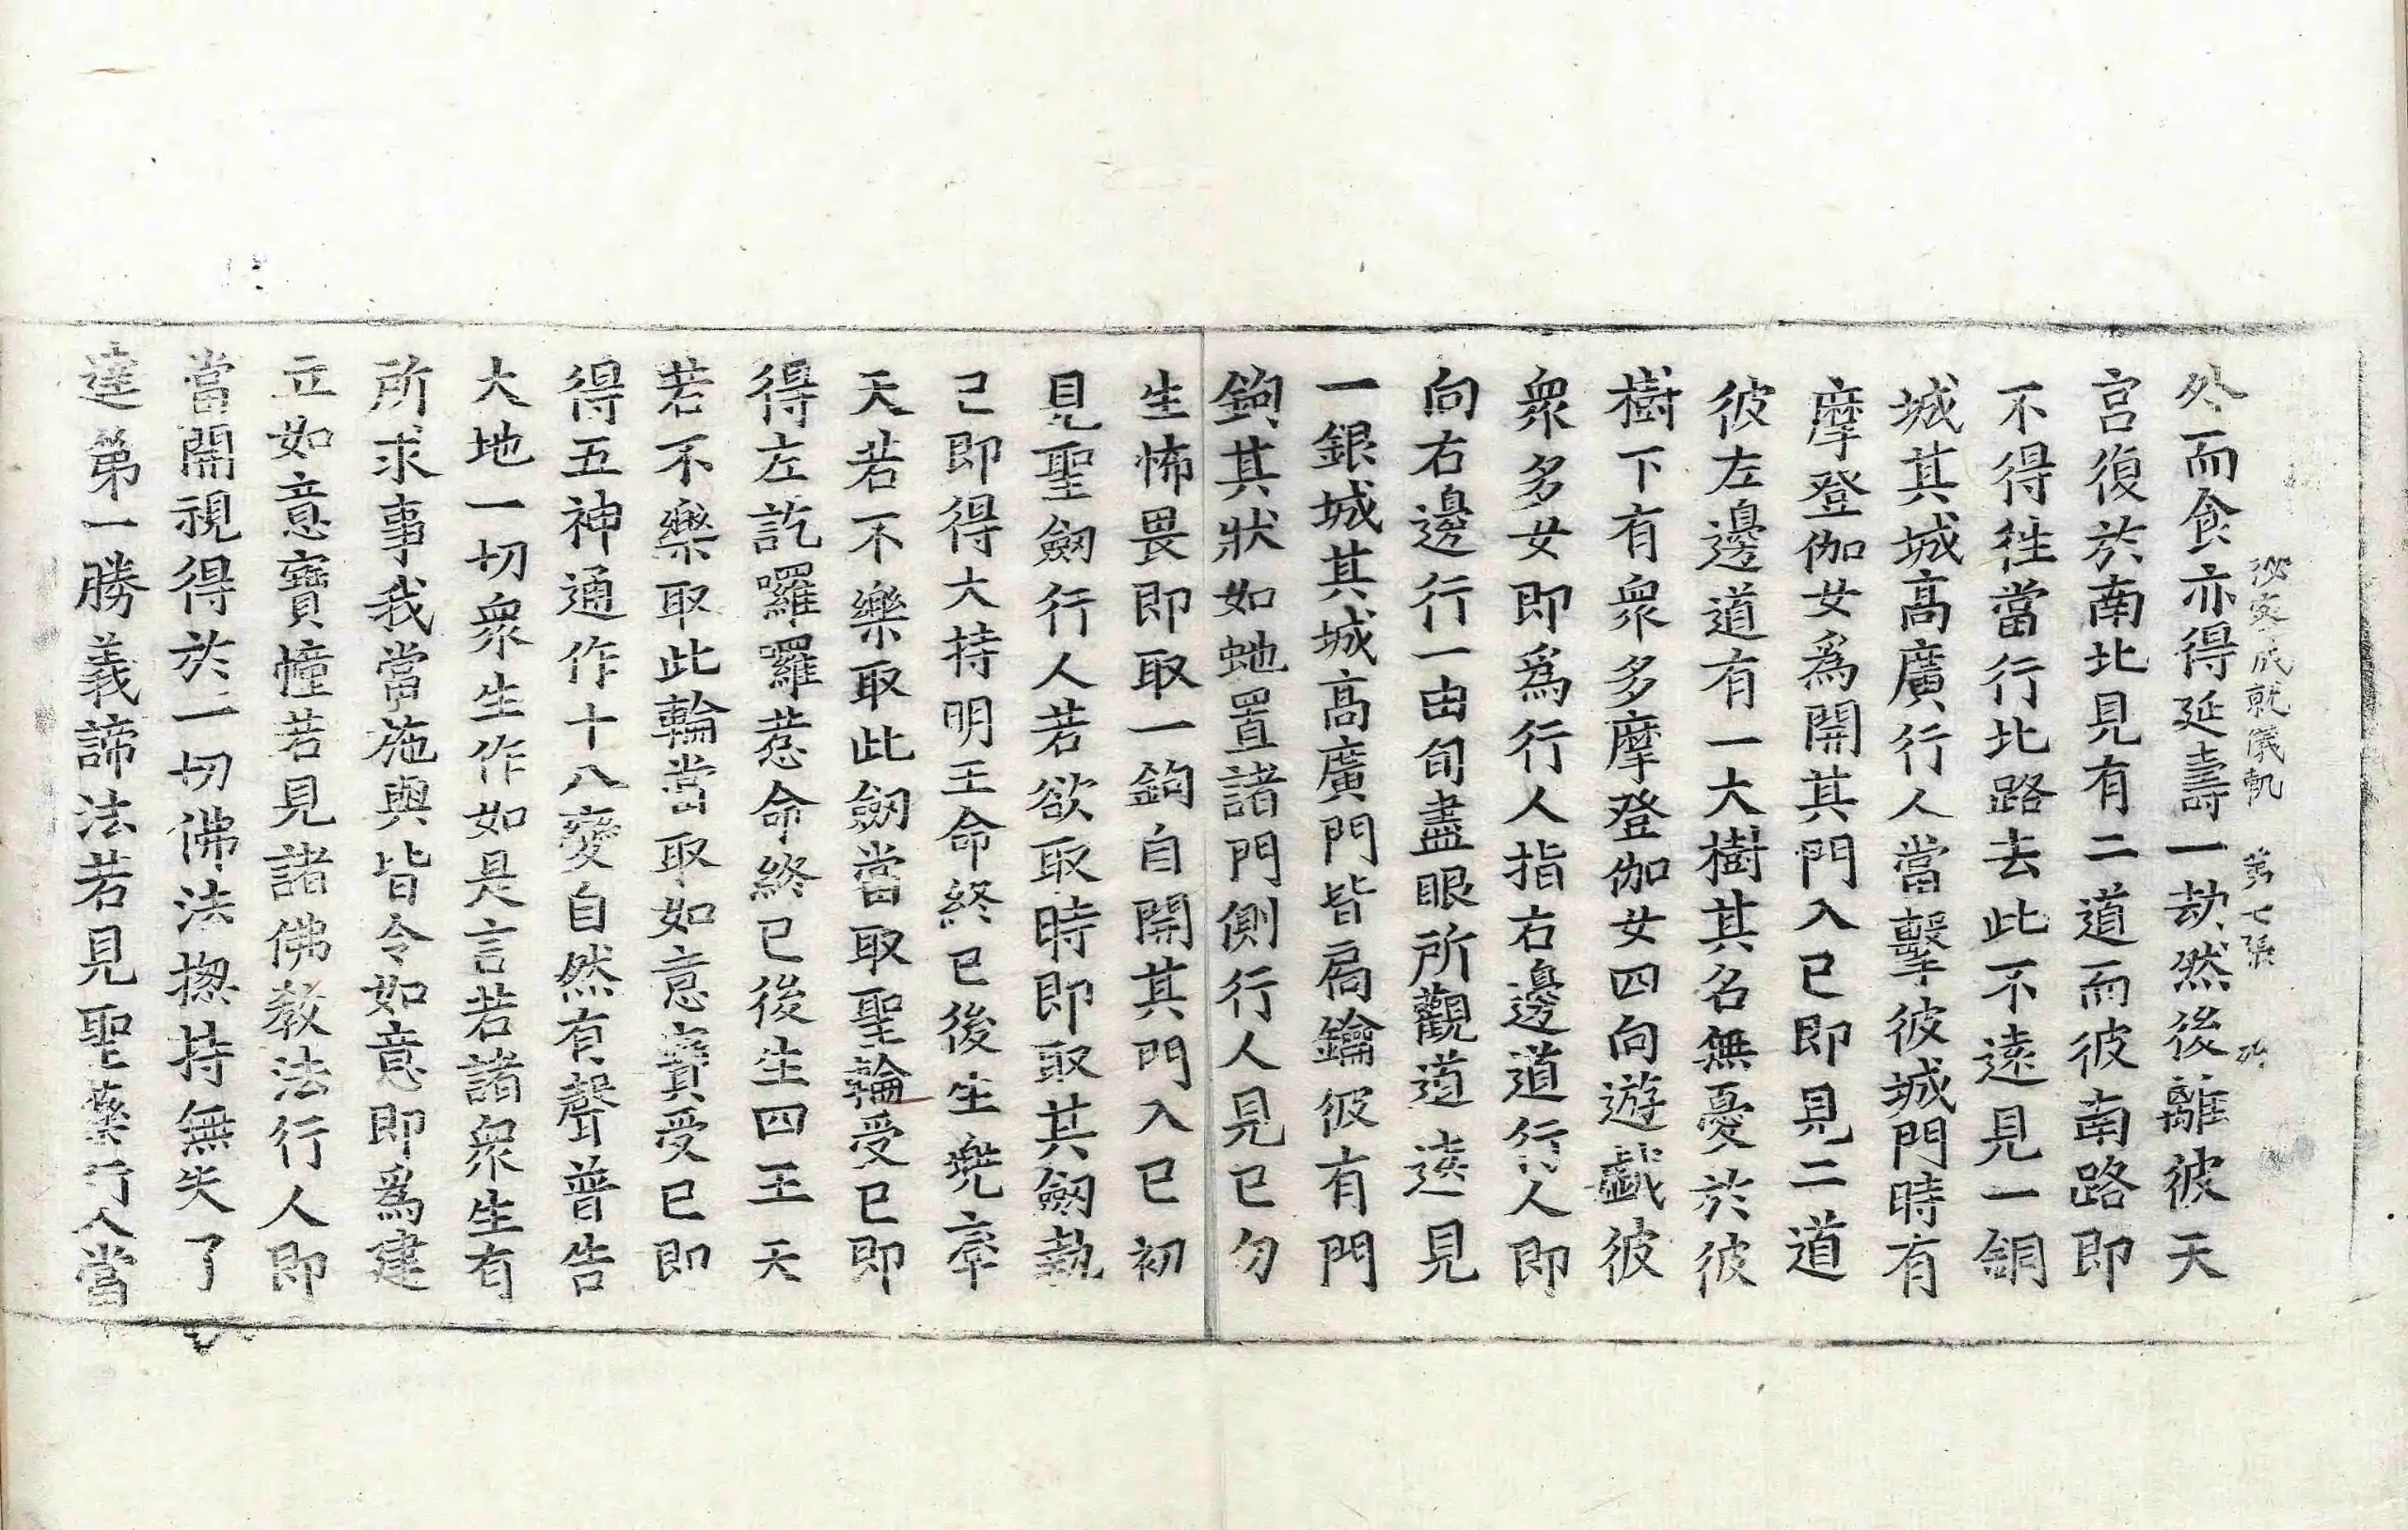 外而食亦得延壽一劫然後離彼天
宮復於南北見有二道而彼南路即
不得徃當行北路去此不遠見一銅
城其城高廣行人當擊彼城門時有
摩登伽女爲開其門入已即見二道
彼左邊道有一大樹其名無憂於彼
樹下有衆多摩登伽女四向遊戲彼
衆多女即爲行人指右邊道行人即
向右邊行一由旬盡眼所觀道遠見
一銀城其城高廣門皆扃鑰彼有門
鉤其狀如虵置諸門側行人見已勿
生怖畏即取一鉤自開其門入已初
見聖劒行人若欲取時即取其劒執
已即得大持明王命終已後生兠率
天若不樂取此劒當取聖輪受已即
得左訖囉囉惹命終已後生四王天
若不樂取此輪當取如意寶受已即
得五神通作十八變自然有聲普告
大地一切衆生作如是言若諸衆生有
所求事我當施與皆令如意即爲建
立如意寶幢若見諸佛教法行人即
當開視得於一切佛法揔持無失了
達第一勝義諦法若見聖藥行人當
成就儀軌 第七張